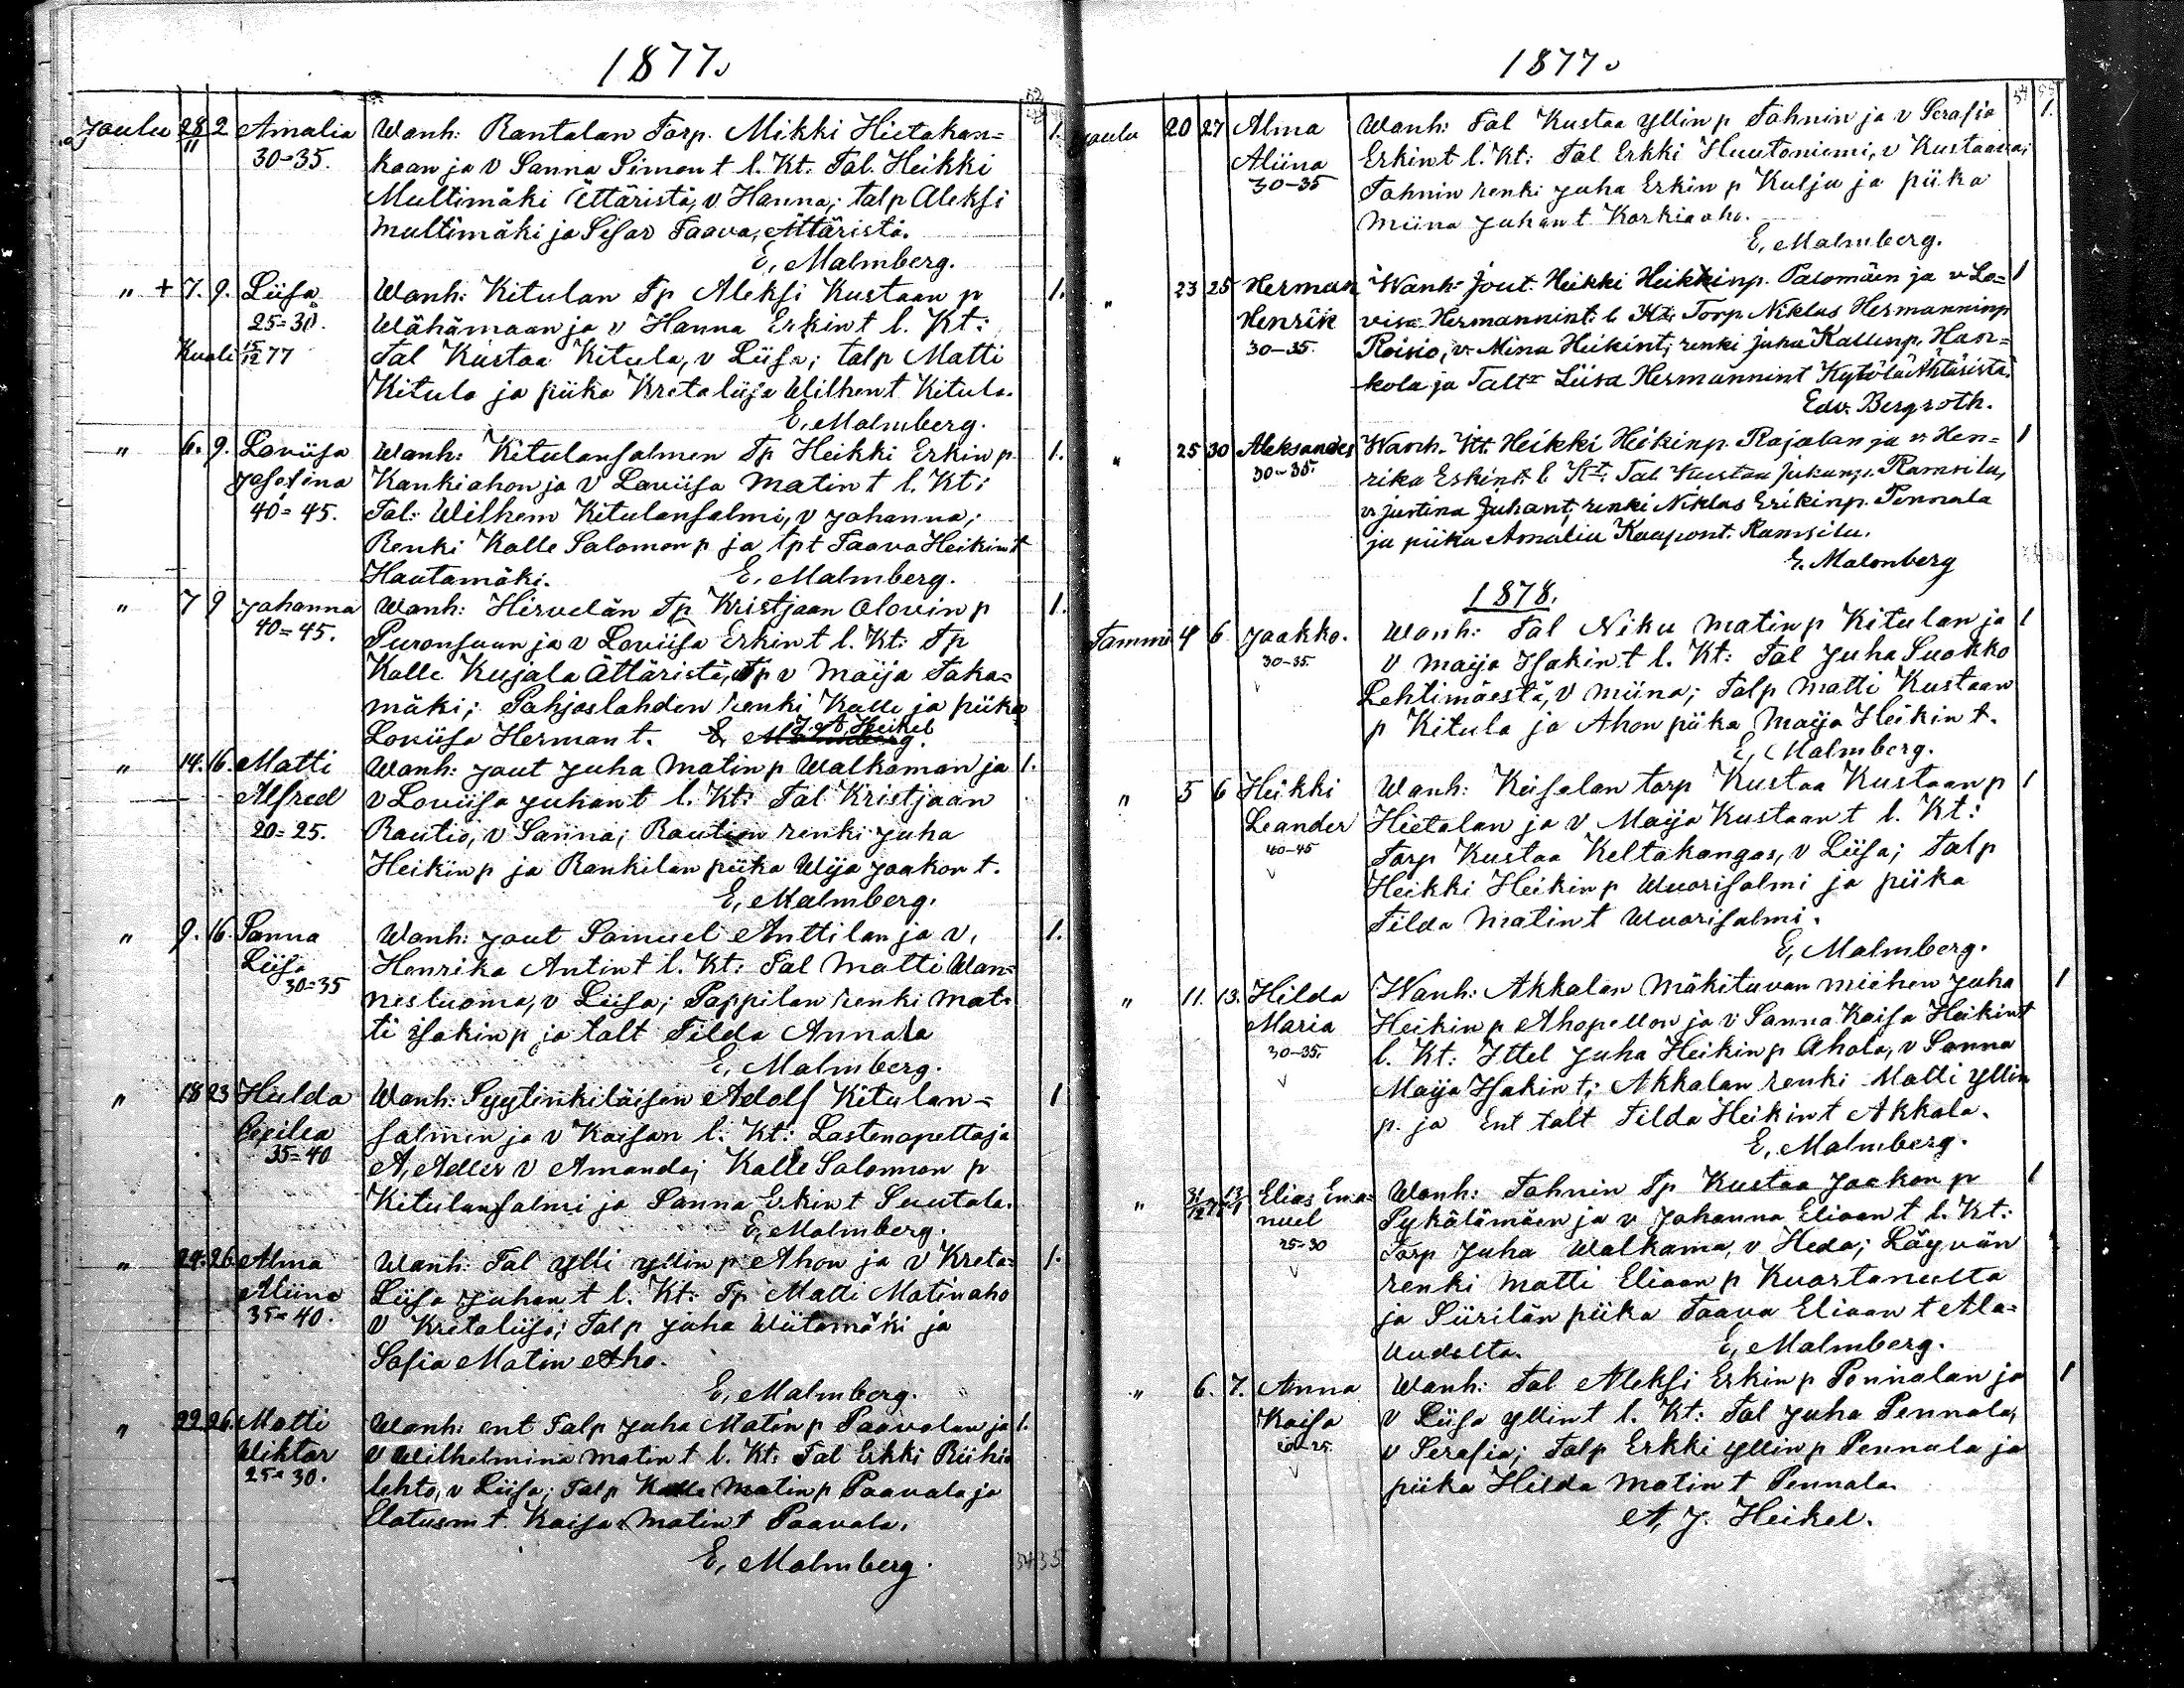 1877.
Joulu 28/11 2 Amalia Wanh: Rantalan Torp. Mikki Hietakan= 1.
30=35. kaan ja v Sanna Simon t l. Kt. Tal. Heikki
Multimäki Ättäristä, v Hanna; talp Aleksi
Multimäki ja Sisar Taava, Ättäristä.
E, Malmberg.
" + 7. 9. Liisa Wanh: Kitulan Tp Aleksi Kustaan p 1.
25=30. Wähämaan ja v Hanna Erkin t l. Kt:
Kuoli 15/12 77 Tal Kustaa Kitula, v Liisa; talp Matti
Kitula ja piika Kretaliisa Wilhen t Kitula.
E, Malmberg.
" 6. 9. Loviisa Wanh: Kitulansalmen Tp Heikki Erkin p 1.
Josefina Kankiahon ja v Loviisa Matin t l. Kt:
40=45. Tal: Wilhem Kitulansalmi, v Johanna;
Renki Kalle Salomon p ja tpt Taava Heikin t
Hautamäki. E, Malmberg.
" 7 9 Johanna Wanh: Hirvelän Tp Kristjaan Olovin p 1.
40=45. Puronsuun ja v Loviisa Erkin t l. Kt: Tp
Kalle Kujala Ättäristä, Tp v Maija Taka=
mäki; Pohjaslahden renki Kalle ja piika
Loviisa Herman t. E, Malmberg. J. A. Heikel
" 14. 16. Matti Wanh: Jout Juha Matin p Walkaman ja 1.
Alfred v Loviisa Juhan t l. Kt: Tal Kristjaan
20=25. Rautio, v Sanna; Raution renki Juha
Heikin p ja Rankilan piika Wija Jaakon t.
E, Malmberg.
" 9. 16. Sanna Wanh: Jout Samuel Anttilan ja v, 1.
Liisa Henrika Antin t l. Kt: Tal Matti Wan=
30=35 nesluoma, v Liisa; Pappilan renki Mat=
ti isakin p ja talt Tilda Annala
E, Malmberg.
" 18 23 Hulda Wanh: Syytinkiläisen Adolf Kitulan= 1
Cesilea salmen ja v Kaisan l. Kt: Lastenopettaja
35=40 A, Adler v Amanda; Kalle Salomon p
Kitulansalmi ja Sanna Erkin t Suutala.
E, Malmberg.
" 24. 26. Alma Wanh: Tal Ylli yllin p Ahon ja v Kreta= 1.
Miina Liisa Juhan t l. Kt: Tp Matti Matinaho
35=40. v Kretaliisa; Talp Juha Wiitamäki ja
Sofia Matin Aho.
E, Malmberg.
" 22 26. Matti Wanh: ent Talp Juha Matin p Paavolan ja 1.
Wiktor v Wilhelmina Matin t l. Kt: Tal Erkki Riihi=
25=30. lehto, v Liisa; Talp Kalle Matin p Paavola ja
Elatusm t. Kaisa Matin t Paavola.
E, Malmberg.
34 35
1877.
54 55
Joulu 20 27 Alma Wanh: Tal Kustaa yllin p Tahnin ja v Serafia 1.
Aliina Erkin t l. Kt: Tal Erkki Huutoniemi, v Kustaava;
30-35 Tahnin renki Juha Erkin p Kulju ja piika
Miina Juhan t Korkiaaho.
E, Malmberg.
" 23 25 Herman Wanh: Jout. Heikki Heikkinp. Palomäen ja v Lo= 1
Henrik visa Hermannint. l. Kt: Torp. Niklas Hermanninp
30-35. Roisio, v. Mina Heikint; renki Juha Kallenp. Han=
kola ja Taltr Liisa Hermannint Kytölä Ähtäristä.
Edv. Bergroth.
" 25 30 Aleksander Wanh. Itt. Heikki Heikinp. Rajalan ja v. Hen= 1
30-35. rika Eskint. l. Kt: Tal. Kustaa Jukanp. Ramsilu,
v. Justina Juhant; renki Niklas Erikinp. Pennala
ja piika Amalia Kaapont. Ramsilu.
E. Malmberg
1878.
Tammi 4 6 Jaakko. Wanh: Tal Niku Matin p Kitulan ja 1
30-35. v Maija Isakin t l. Kt: Tal Juha Suokko
Lehtimäestä, v Miina; Talp Matti Kustaan
p Kitula ja Ahon piika Maija Heikin t.
E, Malmberg.
" 5 6 Heikki Wanh: Keisalan torp Kustaa Kustaan p 1
Leander Hietalan ja v Maija Kustaan t l. Kt:
40-45 Torp Kustaa Keltakangas, v Liisa; Talp
Heikki Heikin p Wuorisalmi ja piika
Tilda Matin t Wuorisalmi.
E, Malmberg.
" 11. 13. Hilda Wanh: Akkalan Mäkituvan miehen Juha 1
Maria Heikin p Ahopellon ja v Sanna Kaisa Heikin t
30-35. l. Kt: Ittel Juha Heikin p Ahola, v Sanna
Maija Isakin t; Akkalan renki Matti Yllin
p. ja Ent talt Tilda Heikin t Akkala.
E, Malmberg.
" 31/12 77 13/1 Elias Ema= Wanh: Tahnin Tp Kustaa Jaakon p 1
nuel Pykälämäen ja v Johanna Eliaan t l. Kt:
25=30 Torp Juha Walkama, v Heda; Läyvän
renki Matti Eliaan p Kuortaneelta
ja Siirilän piika Taava Eliaan t Ala=
vudelta. E, Malmberg.
" 6. 7. Anna Wanh: Tal Aleksi Erkin p Pennalan ja 1
Kaisa v Liisa yllin t l. Kt: Tal Juha Pennala,
20-25. v Serafia; Talp Erkki yllin p Pennala ja
piika Hilda Matin t Pennala.
A, J. Heikel.